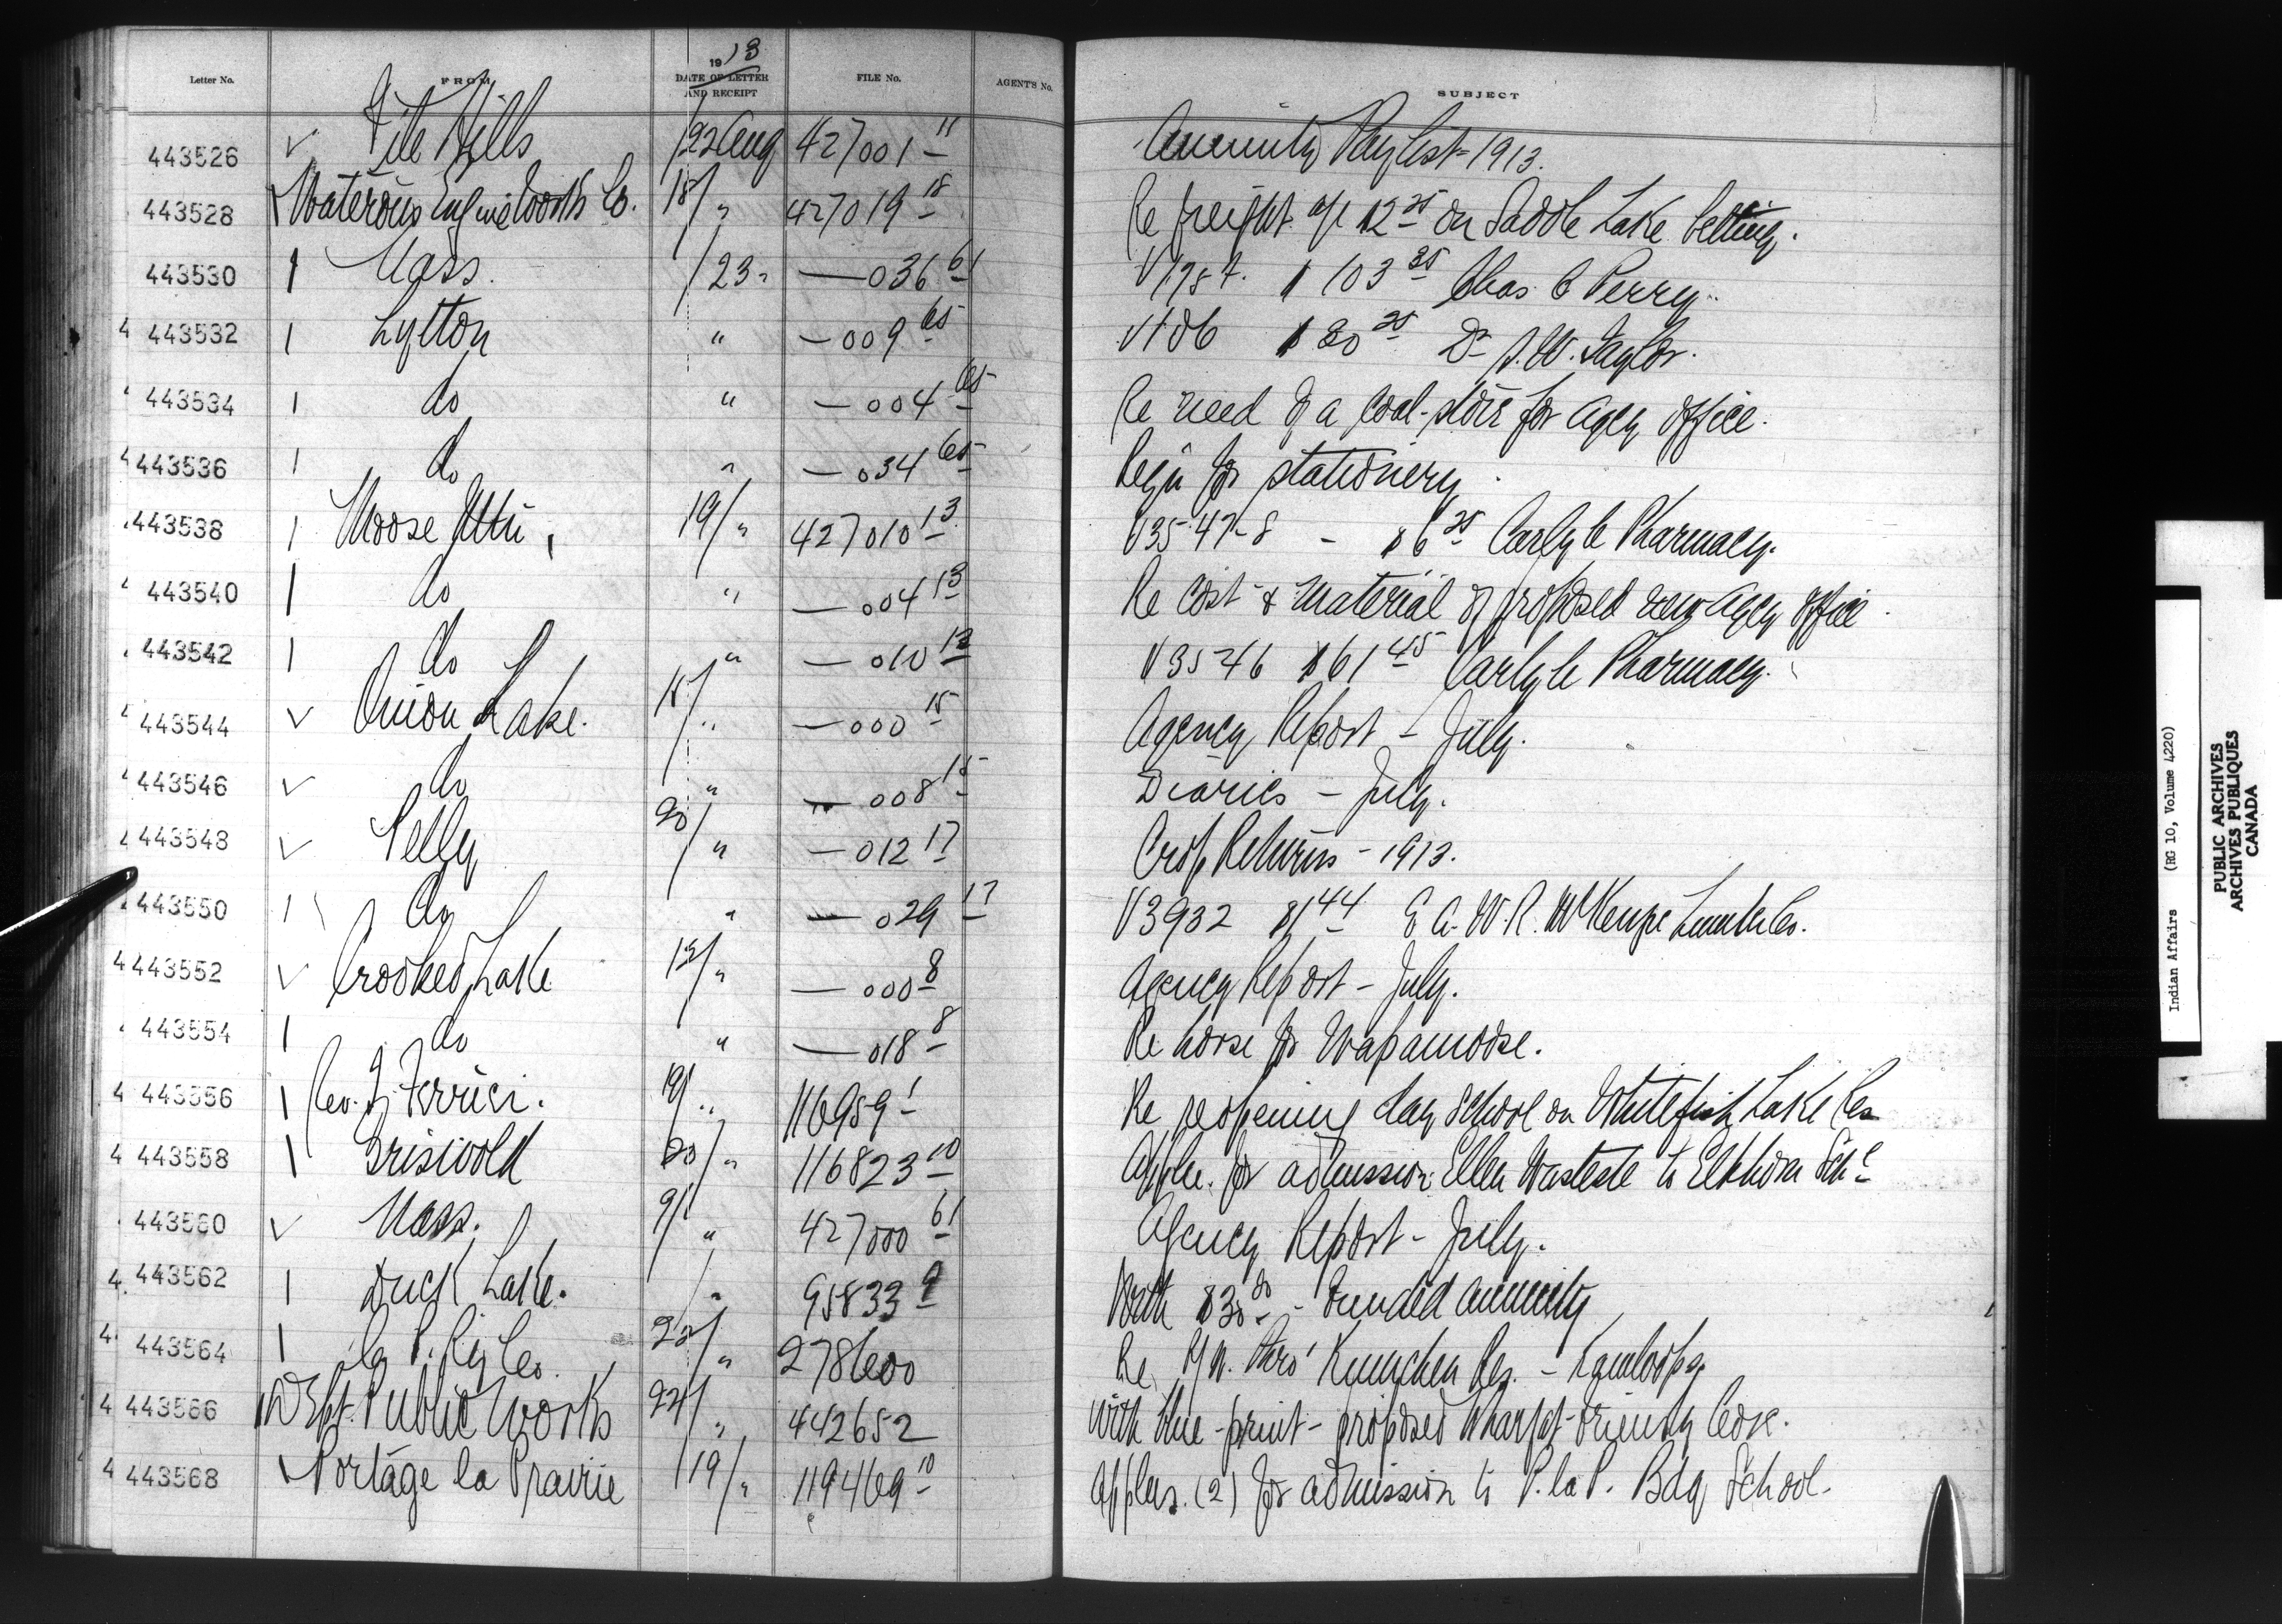 Letter No. FROM 1913 DATE OF LETTER AND RECEIPT FILE No. AGENT'S No. SUBJECT
443526 ✓ File Hills 22 Aug 427001 11 Annuity Pay List - 1913.
443528 Waterous Engine Works Co. 18/ " 427019 18 Re freight a/c 12 25 on Saddle Lake belting.
443530 Nass. /23 " — 036 61 V1954. $103 35 Chas C Perry.
443532 Lytton " — 009 65 V106 $30 25 Dr J.W. Taylor.
443534 do " — 004 65 Re need of a coal-stove for Agcy office.
443536 do " — 034 65 Reqn for stationery.
443538 Moose Mtn. 19/ " 427010 13 V3547-8 - $6 25 Carlyle Pharmacy.
443540 do " — 004 13 Re cost & material of proposed new Agcy office.
443542 do " — 010 13 V3546 $61 45 Carlyle Pharmacy.
443544 ✓ Onion Lake. 18/ " — 000 15 Agency Report - July.
443546 ✓ do " — 008 15 Diaries - July.
443548 ✓ Pelly 20/ " — 012 17 Crop Returns - 1913.
443550 do " — 029 17 V3932 $1 44 E.A.W.R. McKenzie Lumber Co.
443552 ✓ Crooked Lake " — 000 8 Agency Report - July.
443554 do " — 018 8 Re horse for Wapamoose.
443556 Rev. 19/ " 116959 1 Re reopening day school on Whitefish Lake Res
443558 Griswold 20/ " 116823 10 Appln. for admission Ellen Wasteste to Elkhorn Schl
443560 ✓ Nass. 9/ " 427000 61 Agency Report - July.
443562 Duck Lake. " 95833 9 With $30 00 - Funded annuity
443564 C. P. Ry Co. 22/ " 278600 Re R/W. thro' Res. - Kamloops
443566 Dept. Public Works 22/ " 442652 With blue-print - proposed Wharf at Cove.
443568 Portage la Prairie 19/ " 119469 10 Applns. (2) for admission to P. la P. Bdg School.
Indian Affairs (RG 10, Volume 4220)
PUBLIC ARCHIVES
ARCHIVES PUBLIQUES
CANADA